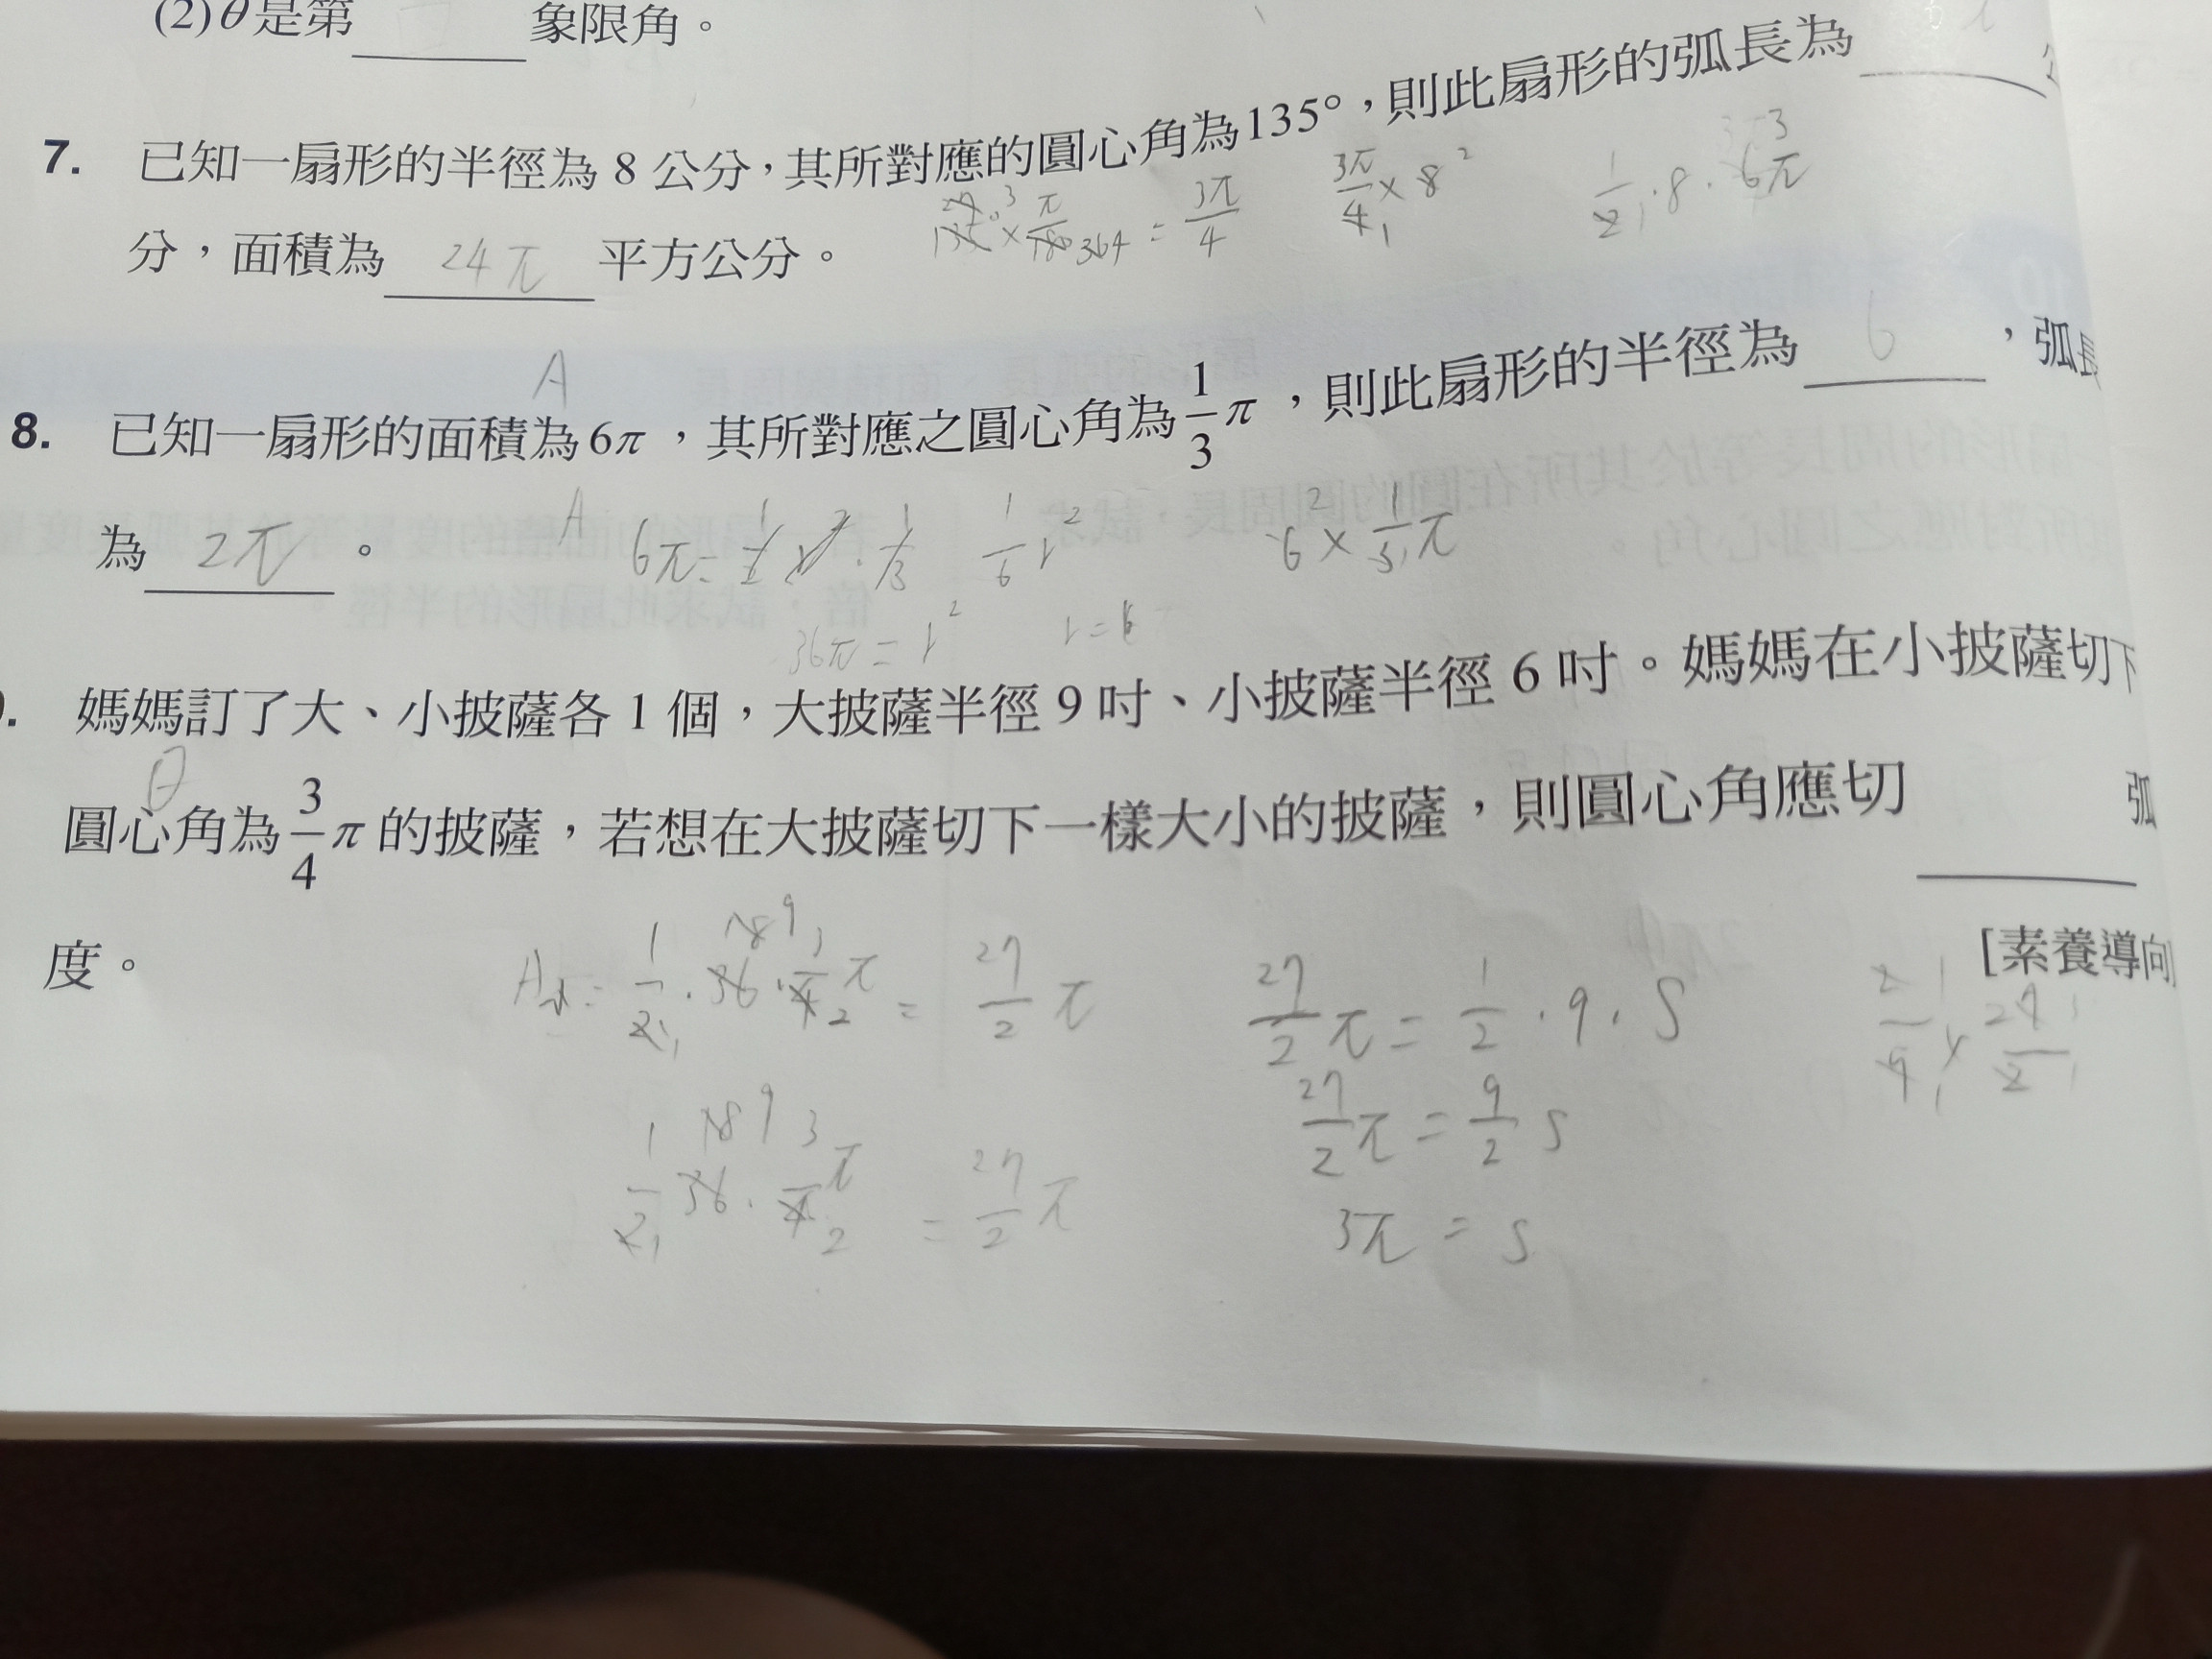 (2) θ是第 象限角。
7. 已知一扇形的半徑為 8 公分，其所對應的圓心角為135°，則此扇形的弧長為
3π/4 × 8 ² 1/2 · 8 · 6π 3
= 3π/4
分，面積為 24π 平方公分。
A
8. 已知一扇形的面積為6π，其所對應之圓心角為 1/3 π，則此扇形的半徑為 6 ，弧長
為 2π 。
A 6π = 1/2 r² · 1/3 1/6 r² 6 ² × 1/3 π
36π = r² r = 6
. 媽媽訂了大、小披薩各 1 個，大披薩半徑 9 吋、小披薩半徑 6 吋。媽媽在小披薩切下
θ
圓心角為 3/4 π 的披薩，若想在大披薩切下一樣大小的披薩，則圓心角應切 弧
度。 [素養導向
A小 = 1/2 · 36 · 3/4 π = 27/2 π 27/2 π = 1/2 · 9 · S 2/9 × 27/2
1/2 36 · 3/4 π = 27/2 π 27/2 π = 9/2 S
3π = S